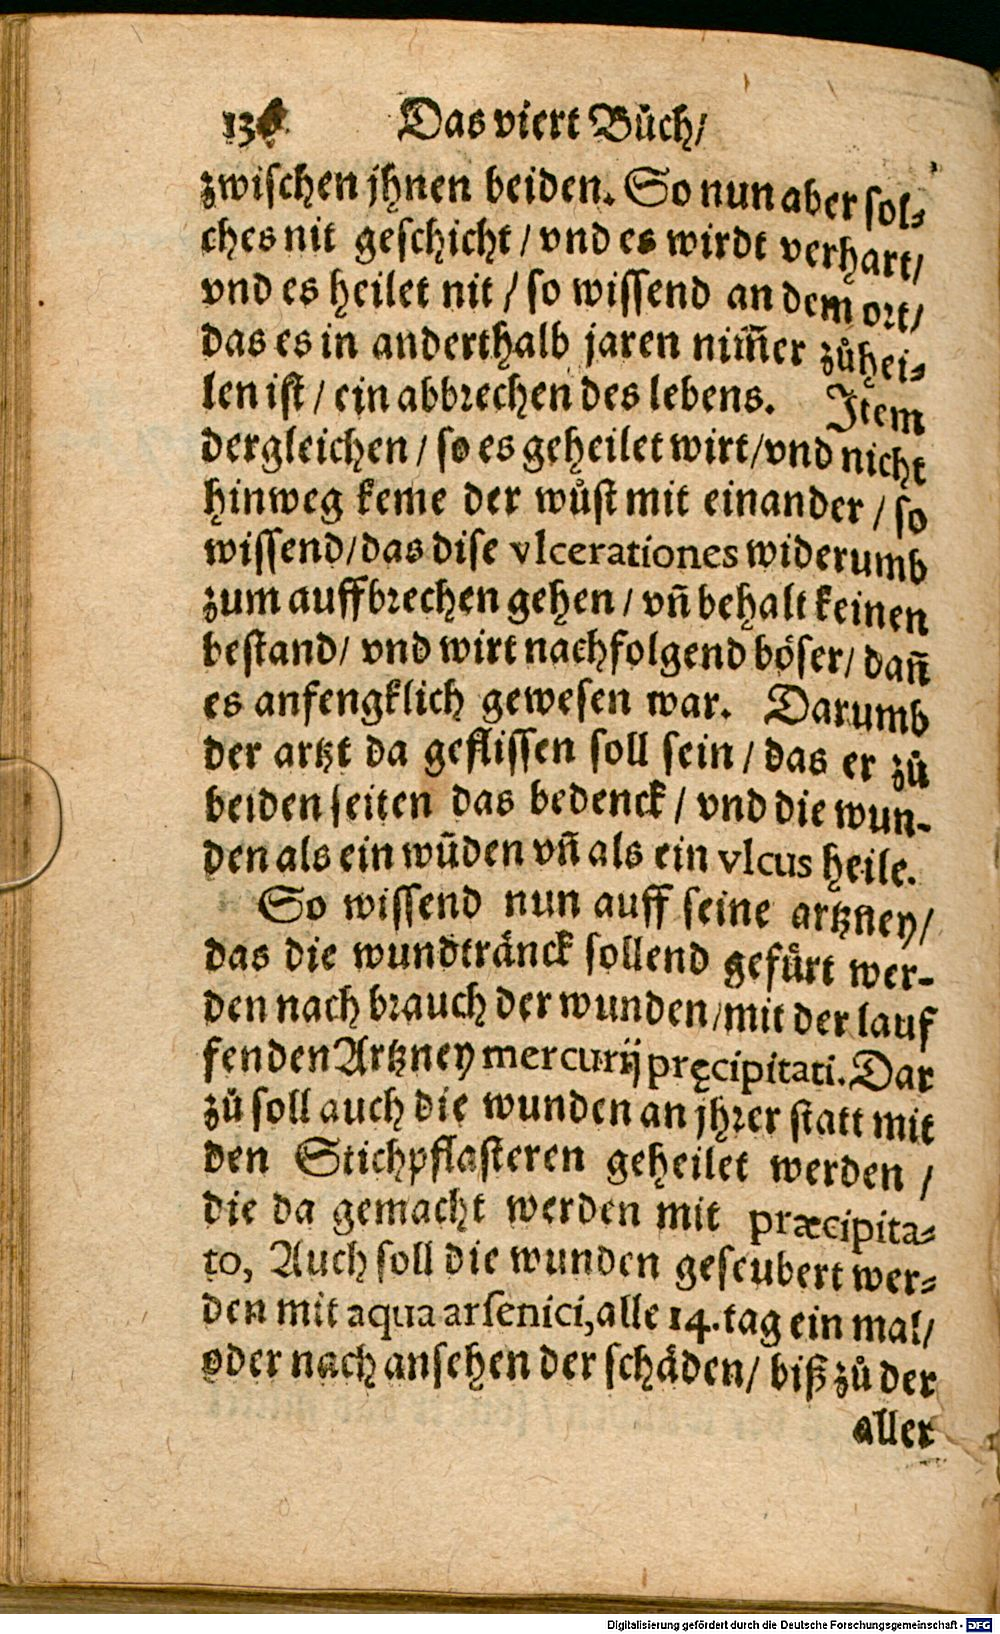 136 Das viert Bůch/
zwischen jhnen beiden. So nun aber sol⸗
ches nit geschicht/ vnd es wirdt verhart/
vnd es heilet nit/ so wissend an dem ort/
das es in anderthalb jaren nim̃er zůhei⸗
len ist/ ein abbrechen des lebens. Item
dergleichen/ so es geheilet wirt/ vnd nicht
hinweg keme der wůst mit einander/ so
wissend/ das dise vlcerationes widerumb
zum auffbrechen gehen/ vñ behalt keinen
bestand/ vnd wirt nachfolgend böser/ dañ
es anfengklich gewesen war. Darumb
der artzt da geflissen soll sein/ das er zů
beiden seiten das bedenck/ vnd die wun-
den als ein wũden vñ als ein vlcus heile.
So wissend nun auff seine artzney/
das die wundtränck sollend gefůrt wer-
den nach brauch der wunden/ mit der lauf
fenden Artzney mercurij pręcipitati. Dar
zů soll auch die wunden an jhrer statt mit
den Stichpflasteren geheilet werden/
die da gemacht werden mit præcipita⸗
to, Auch soll die wunden geseubert wer⸗
den mit aqua arsenici, alle 14. tag ein mal/
oder nach ansehen der schäden/ biß zů der
aller
Digitalisierung gefördert durch die Deutsche Forschungsgemeinschaft - DFG